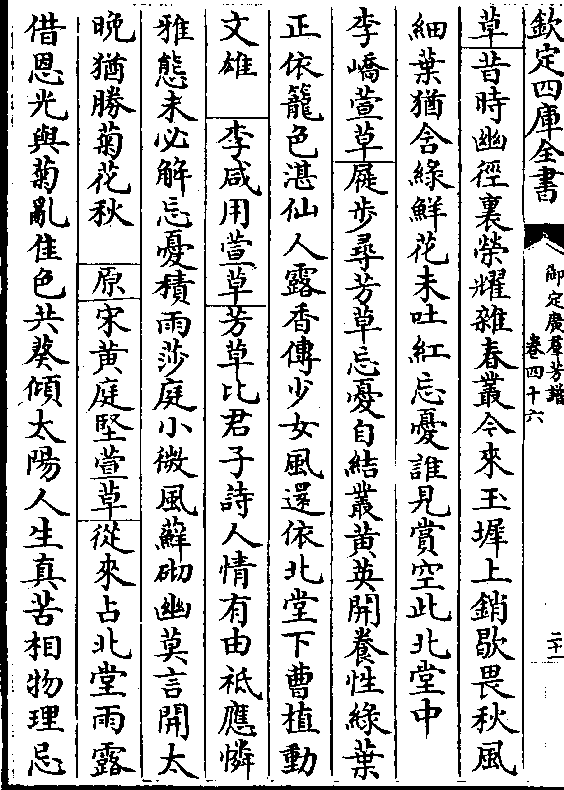 欽定四庫全書
御定廣羣芳譜
卷四十六
二十一
草昔時幽徑裏榮耀雜春叢今來玉墀上銷歇畏秋風
細葉猶含緑鮮花未吐紅忘憂誰見賞空此北堂中
李嶠萱草屣步尋芳草忘憂自結叢黄英開養性緑葉
正依籠色湛仙人露香傳少女風還依北堂下曹植動
文雄　李咸用萱草芳草比君子詩人情有由祗應憐
雅態未必解忘憂積雨莎庭小微風蘚砌幽莫言開太
晚猶勝菊花秋　原宋黄庭堅萱草從來占北堂雨露
借恩光與菊亂佳色共葵傾太陽人生真苦相物理忌